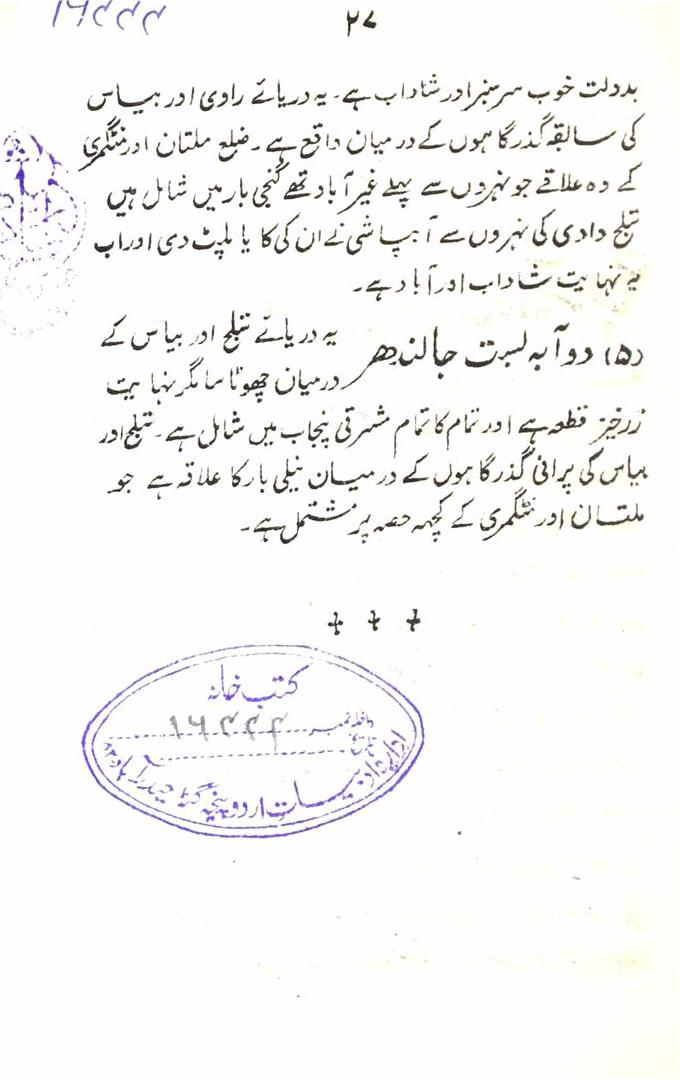 ۲۷
بدولت خوب سرسبز اور شاداب ہے۔ یہ دریائے راوی اور بیاس
کی سابقہ گذرگاہوں کے درمیان واقع ہے۔ ضلع ملتان اور منٹگمری
کے وہ علاقے جو نہروں سے پہلے غیر آباد تھے گنجی بار میں شامل ہیں
ستلج وادی کی نہروں سے آبپاشی نے ان کی کایا پلٹ دی اور اب
یہ نہایت شاداب اور آباد ہے۔
(۵) دوآبہ بست جالندھر
یہ دریائے ستلج اور بیاس کے
درمیان چھوٹا سا مگر نہایت
زرخیز قطعہ ہے اور تمام کا تمام مشرقی پنجاب میں شامل ہے۔ ستلج اور
بیاس کی پرانی گذرگاہوں کے درمیان نیلی بار کا علاقہ ہے جو
ملتان اور منٹگمری کے کچھ حصہ پر مشتمل ہے۔
کتب خانہ
داخلہ نمبر
تاریخ
ادارہ ادبیات اردو پنجہ گٹہ حیدرآباد